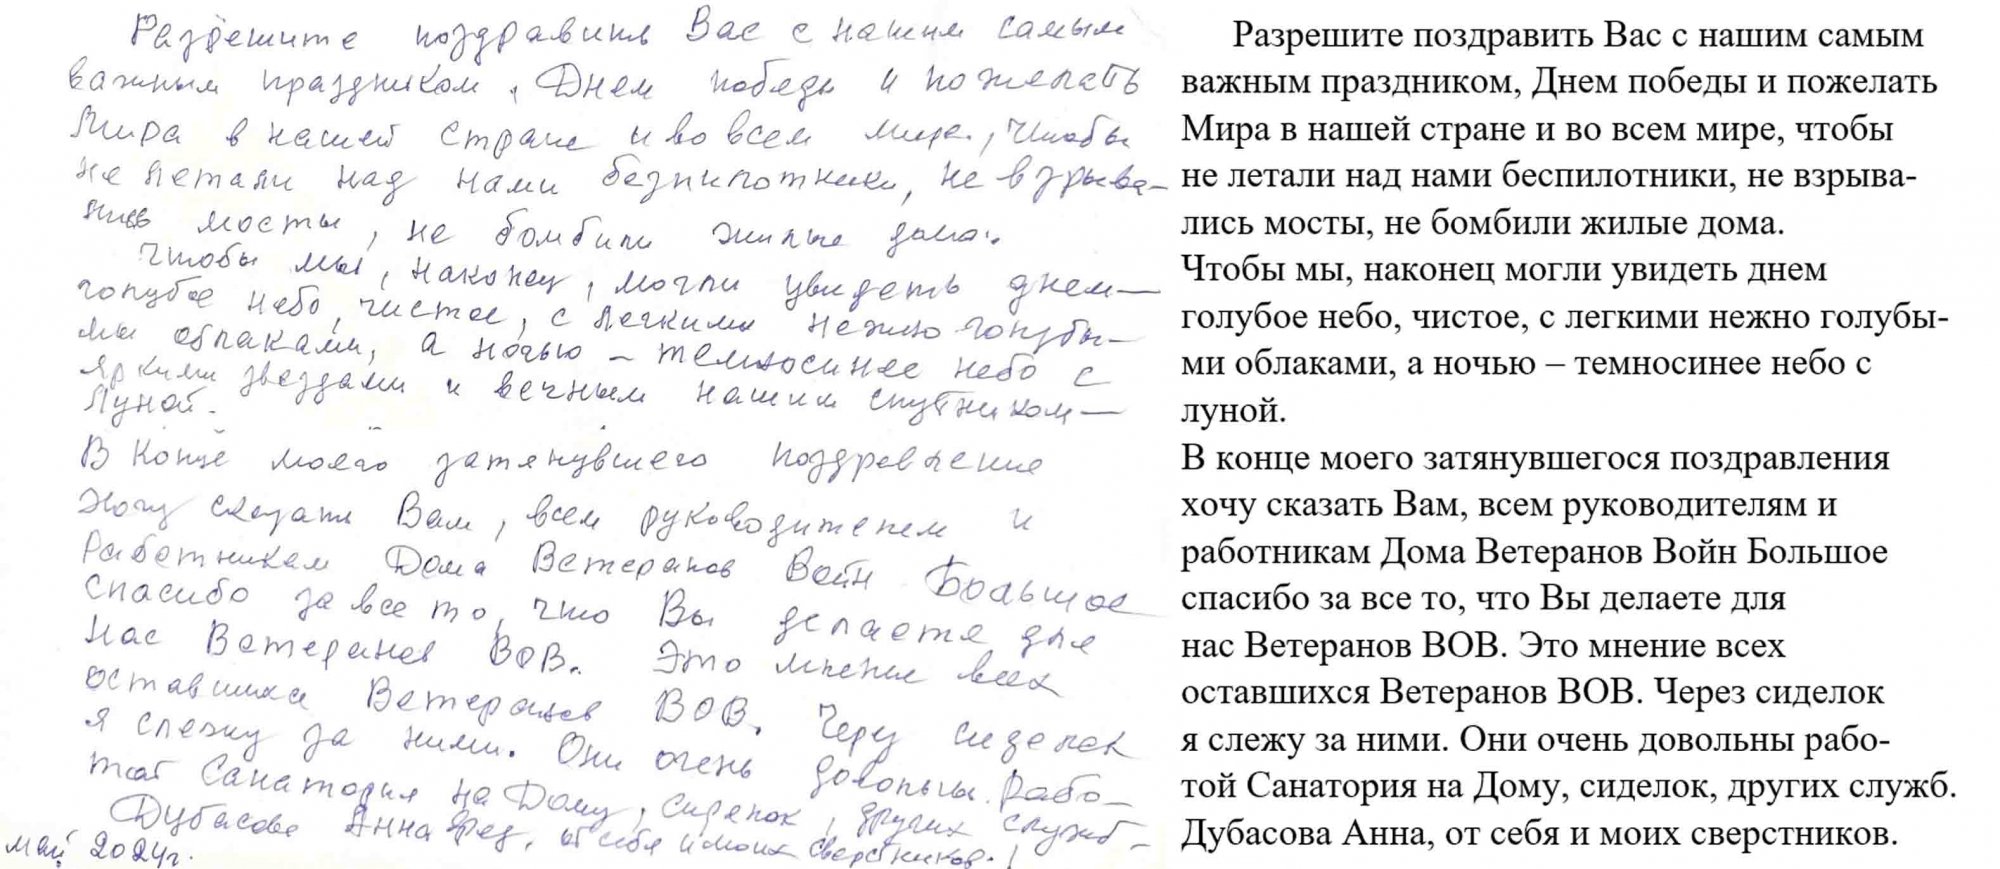 Разрешите поздравить Вас с нашим самым
важным праздником, Днем победы и пожелать
Мира в нашей стране и во всем мире, чтобы
не летали над нами безпилотники, не взрыва-
лись мосты, не бомбили жилые дома.
Чтобы мы, наконец, могли увидеть днем —
голубое небо, чистое, с легкими нежно голубы-
ми облаками, а ночью – темносинее небо с
яркими звездами и вечным нашим спутником —
Луной.
В конце моего затянувшегося поздравления
хочу сказать Вам, всем руководителям и
работникам Дома Ветеранов Войн Большое
спасибо за все то, что Вы делаете для
нас Ветеранов ВОВ. Это мнение всех
оставшихся Ветеранов ВОВ. Через сиделок
я слежу за ними. Они очень довольны рабо-
той Санатория на Дому, сиделок, других служб.
Дубасова Анна Фед. от себя и моих сверстников.
май 2024г.
Разрешите поздравить Вас с нашим самым
важным праздником, Днем победы и пожелать
Мира в нашей стране и во всем мире, чтобы
не летали над нами беспилотники, не взрыва-
лись мосты, не бомбили жилые дома.
Чтобы мы, наконец могли увидеть днем
голубое небо, чистое, с легкими нежно голубы-
ми облаками, а ночью – темносинее небо с
луной.
В конце моего затянувшегося поздравления
хочу сказать Вам, всем руководителям и
работникам Дома Ветеранов Войн Большое
спасибо за все то, что Вы делаете для
нас Ветеранов ВОВ. Это мнение всех
оставшихся Ветеранов ВОВ. Через сиделок
я слежу за ними. Они очень довольны рабо-
той Санатория на Дому, сиделок, других служб.
Дубасова Анна, от себя и моих сверстников.